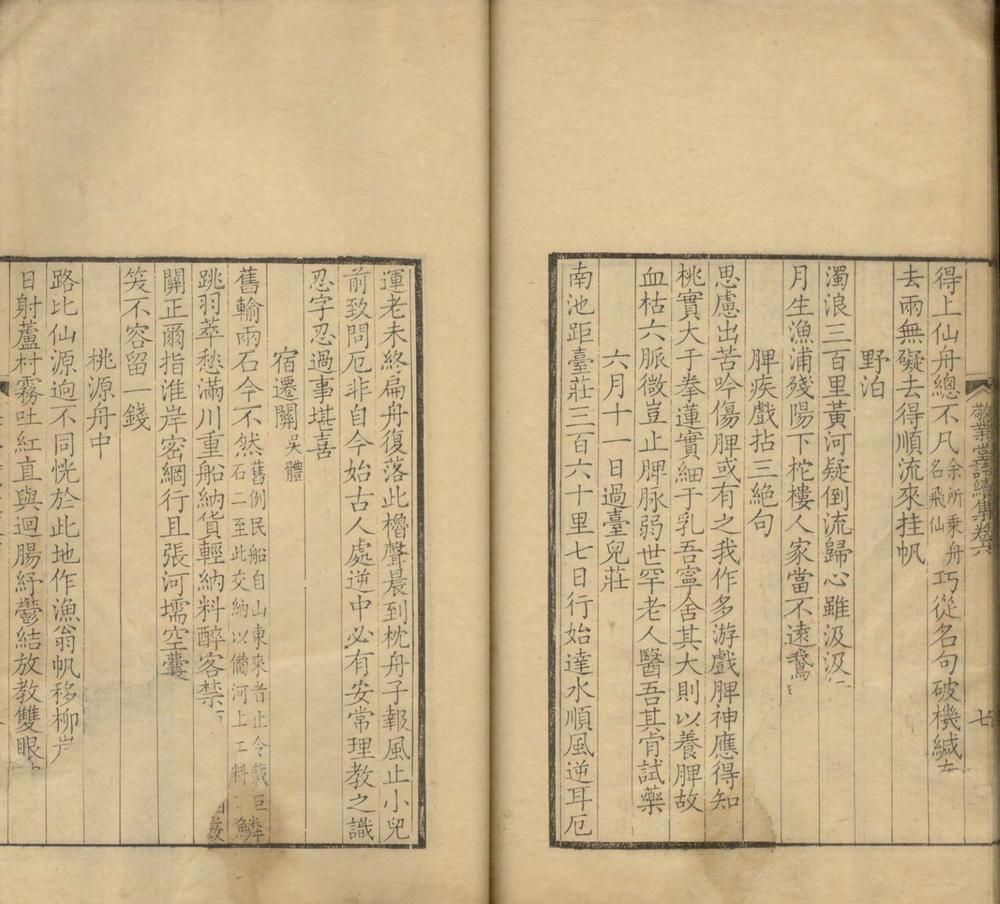 敬業堂詩續集卷六
七
得上仙舟總不凡余所乘舟名飛仙巧從名句破機緘
去雨無礙去得順流來挂帆
野泊
濁浪三百里黃河疑倒流歸心雖汲汲
月生漁浦殘陽下柁樓人家當不遠鵞
脾疾戲拈三絕句
思慮出苦吟傷脾或有之我作多游戲脾神應得知
桃實大于拳蓮實細于乳吾寧舍其大則以養脾故
血枯六脈微豈止脾脉弱世罕老人醫吾其肯試藥
六月十一日過臺兒莊
南池距臺莊三百六十里七日行始達水順風逆耳厄
運老未終扁舟復落此櫓聲晨到枕舟子報風止小兒
前致問厄非自今始古人處逆中必有安常理教之識
忍字忍過事堪喜
宿遷關吳體
舊輸兩石今不然舊例民船自山東來者止令載巨石二至此交納以備河上工料鱗
跳羽萃愁滿川重船納貨輕納料醉客禁
關正爾指淮岸密網行且張河壖空囊
笑不容留一錢
桃源舟中
路比仙源逈不同恍於此地作漁翁帆移柳岸
日射蘆村霧吐紅直與迴腸紓鬱結放教雙眼